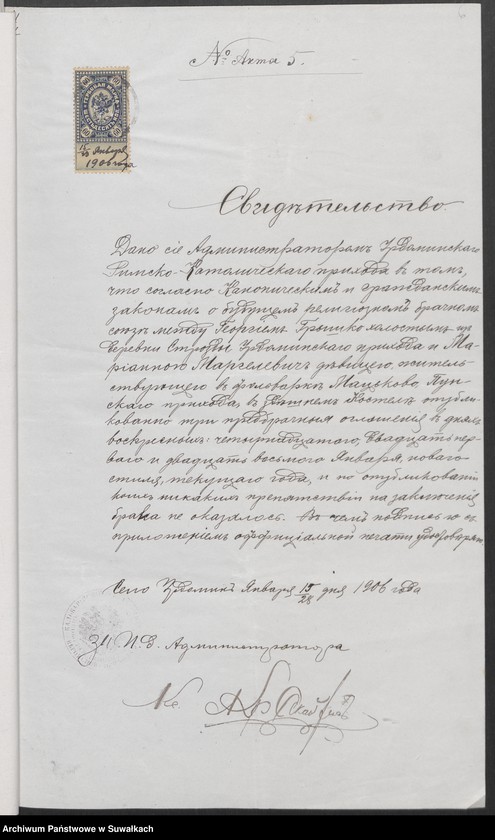 № Акта 5.
60 60
60 60
15/28 Января
1906 года
Свидѣтельство
Дано сіе Администраторомъ Урдоминскаго
Римско-Католическаго прихода въ томъ,
что согласно Каноническимъ и гражданскимъ
законамъ о будущемъ религіозномъ брачномъ
союзѣ между Георгіемъ Грошко холостымъ изъ
деревни Стровы Урдоминскаго прихода и Ма-
ріанною Маргелевичъ дѣвицею, житель-
ствующего въ фольваркѣ Мацьково Пун-
скаго прихода, въ здѣшнемъ Костелѣ опубли-
кованно три предбрачныя оглашенія въ дняхъ
воскресныхъ: четырнадцатого, двадцать пер-
ваго и двадцать восьмого Января, новаго
стиля, текущаго года, и по опубликованіи
коихъ никакихъ препятствій на заключеніе
брака не оказалось. Въ чемъ подписью съ
приложеніемъ оффиціальной печати удостовѣряю.
Село Урдоминъ Января 15/28 дня 1906 года
За И. Д. Администратора
Кс. А.
Archiwum Państwowe w Suwałkach